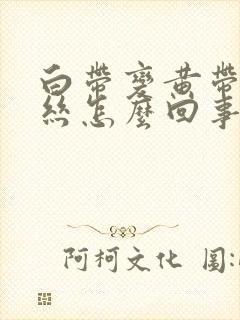 白帶變黃帶
絲怎麼回事
阿柯文化 圖: